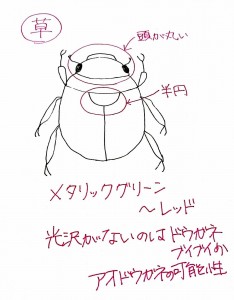 草
頭が丸い
半円
メタリックグリーン
～レッド
光沢がないのはドウガネ
ブイブイか
アオドウガネの可能性